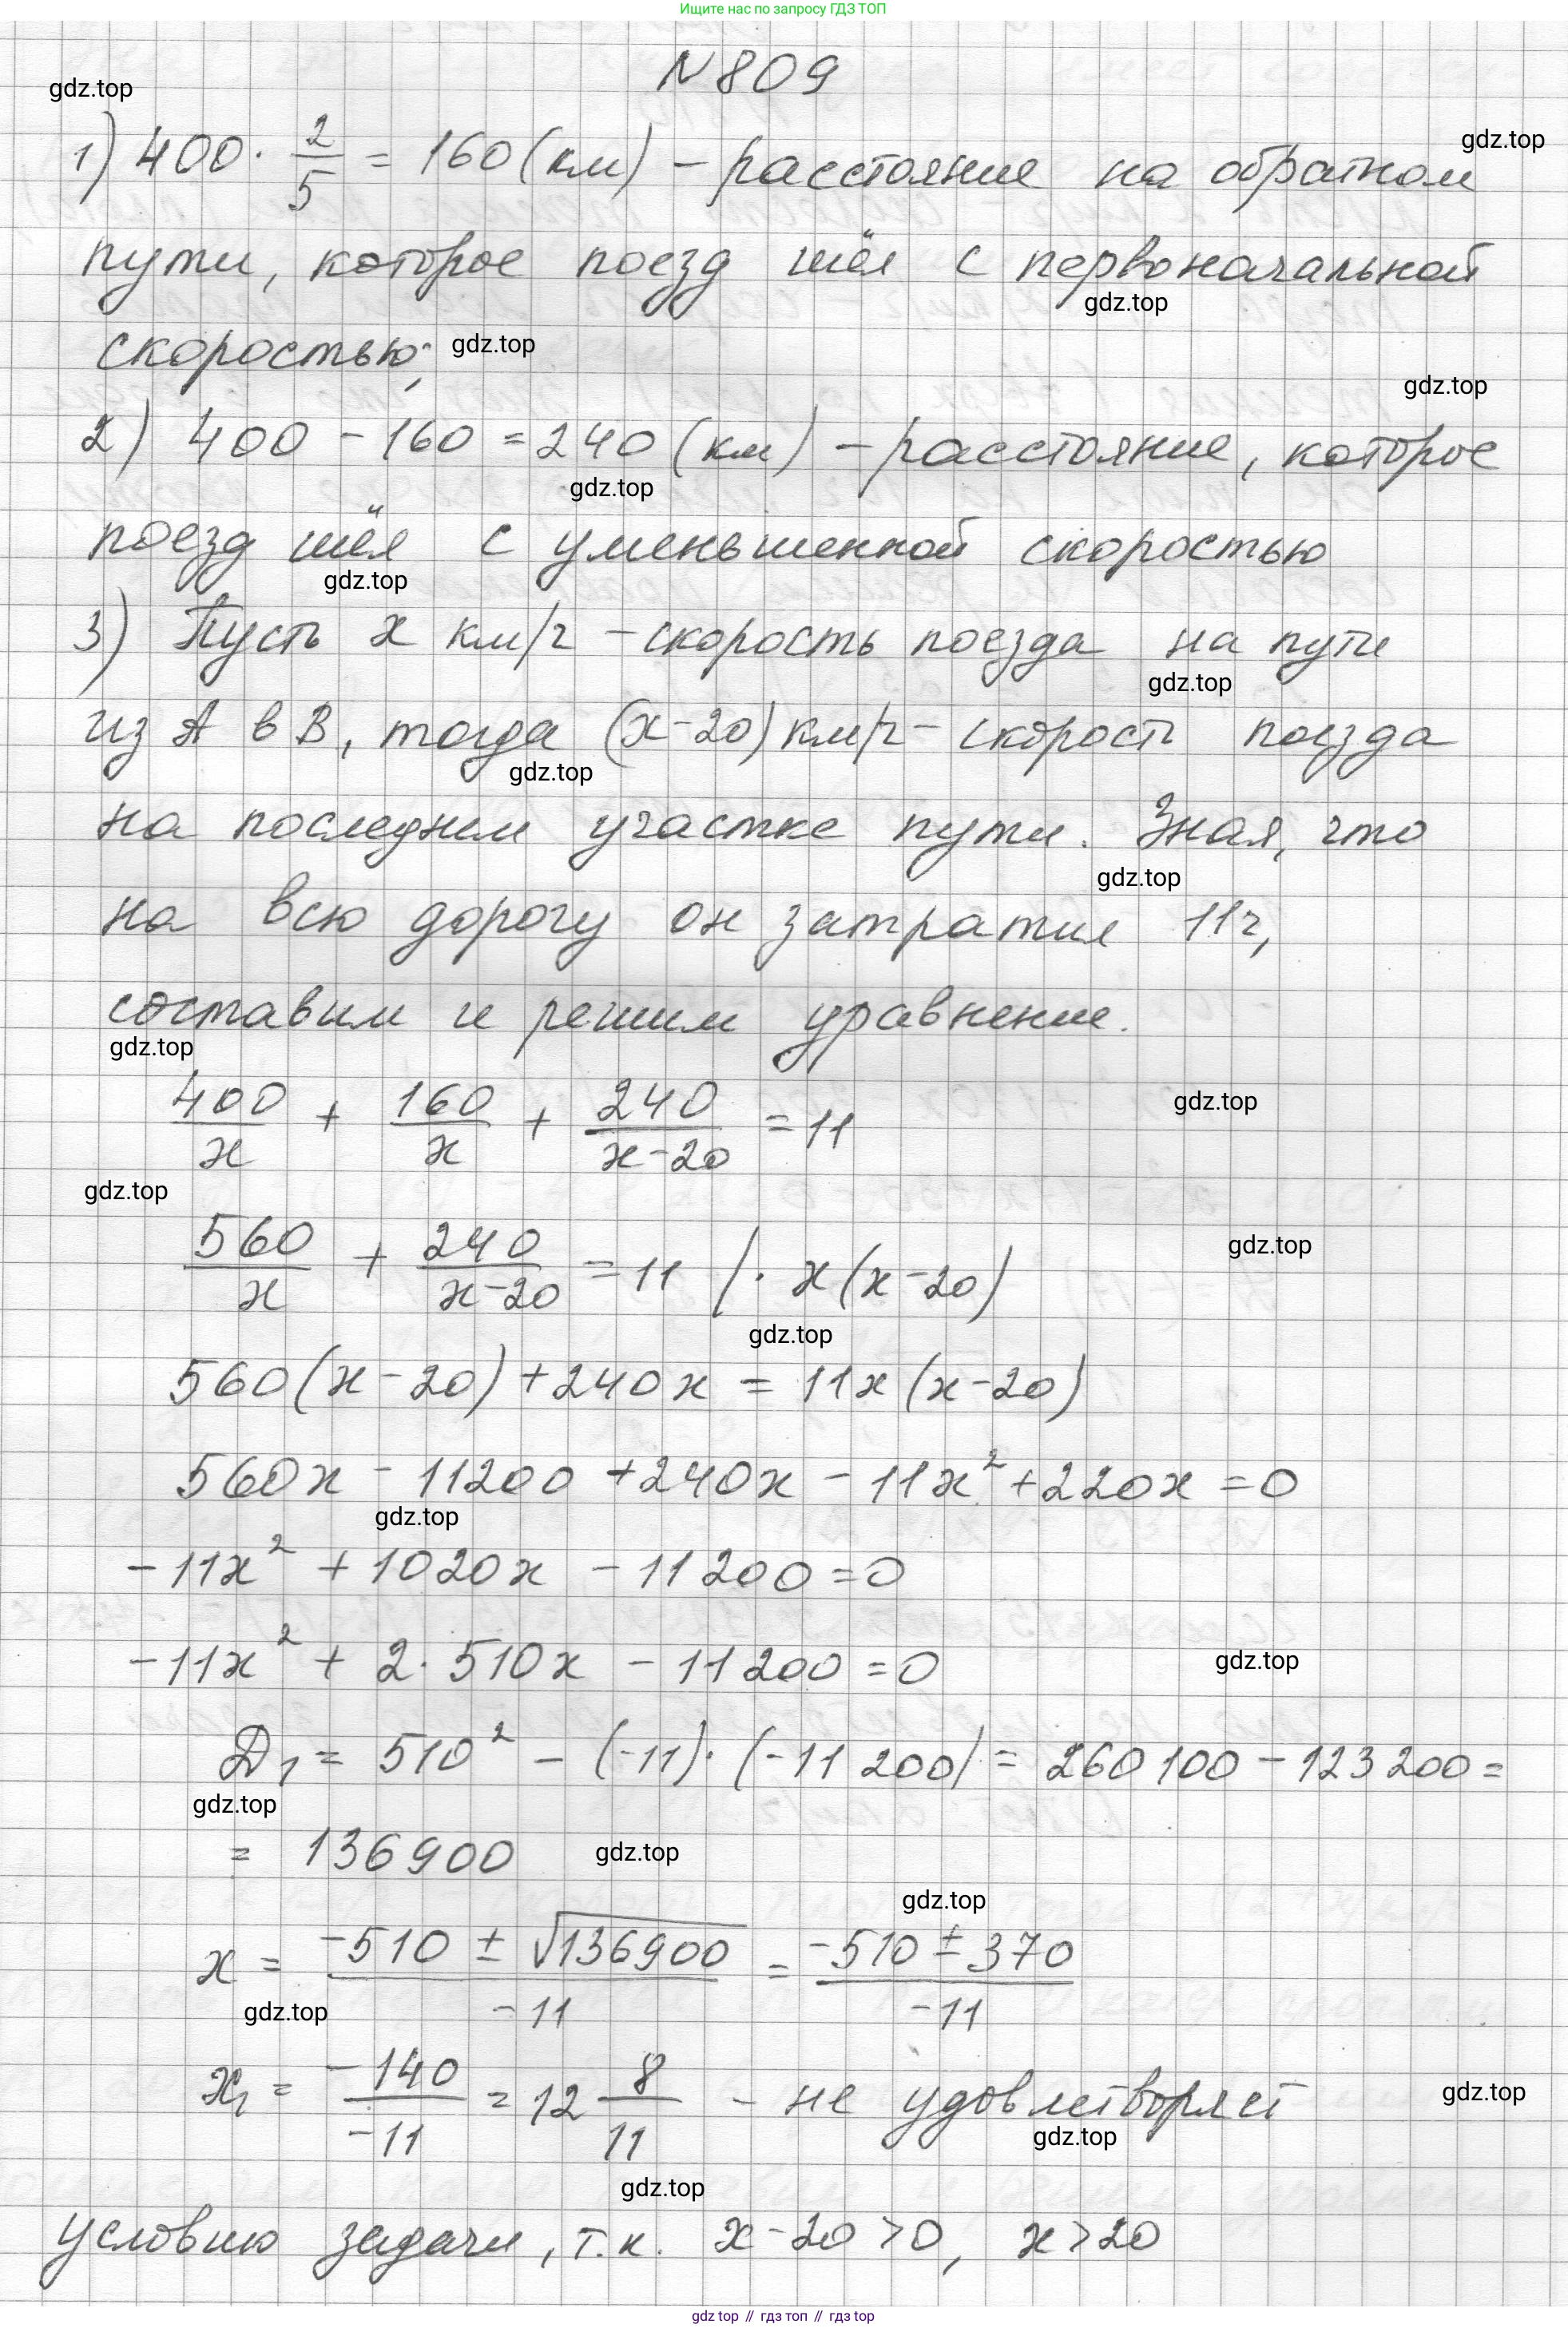 Ищите нас по запросу ГДЗ ТОП
№ 809
gdz.top
1) 400 · 2/5 = 160 (км) – расстояние на обратном
gdz.top
пути, которое поезд шёл с первоначальной
gdz.top
скоростью;
gdz.top
gdz.top
2) 400 – 160 = 240 (км) – расстояние, которое
gdz.top
поезд шёл с уменьшенной скоростью
gdz.top
3) Пусть x км/ч – скорость поезда на пути
gdz.top
из A в B, тогда (x-20) км/ч – скорость поезда
gdz.top
на последнем участке пути. Зная, что
gdz.top
на всю дорогу он затратил 11ч,
составим и решим уравнение.
gdz.top
400/x + 160/x + 240/(x-20) = 11
gdz.top
gdz.top
560/x + 240/(x-20) = 11 /· x(x-20)
gdz.top
gdz.top
560(x-20)+240x = 11x(x-20)
560x - 11200 +240x - 11x² +220x = 0
gdz.top
-11x² + 1020x - 11200 = 0
-11x² + 2·510x - 11200 = 0
gdz.top
D₁ = 510² - (-11)·(-11200) = 260100 - 123200 =
gdz.top
= 136900
gdz.top
gdz.top
x = (-510 ± √136900)/-11 = (-510 ± 370)/-11
gdz.top
x₁ = -140/-11 = 12 8/11 – не удовлетворяет
gdz.top
gdz.top
gdz.top
условию задачи, т.к. x-20>0, x>20
gdz.top // гдз топ // гдз.top